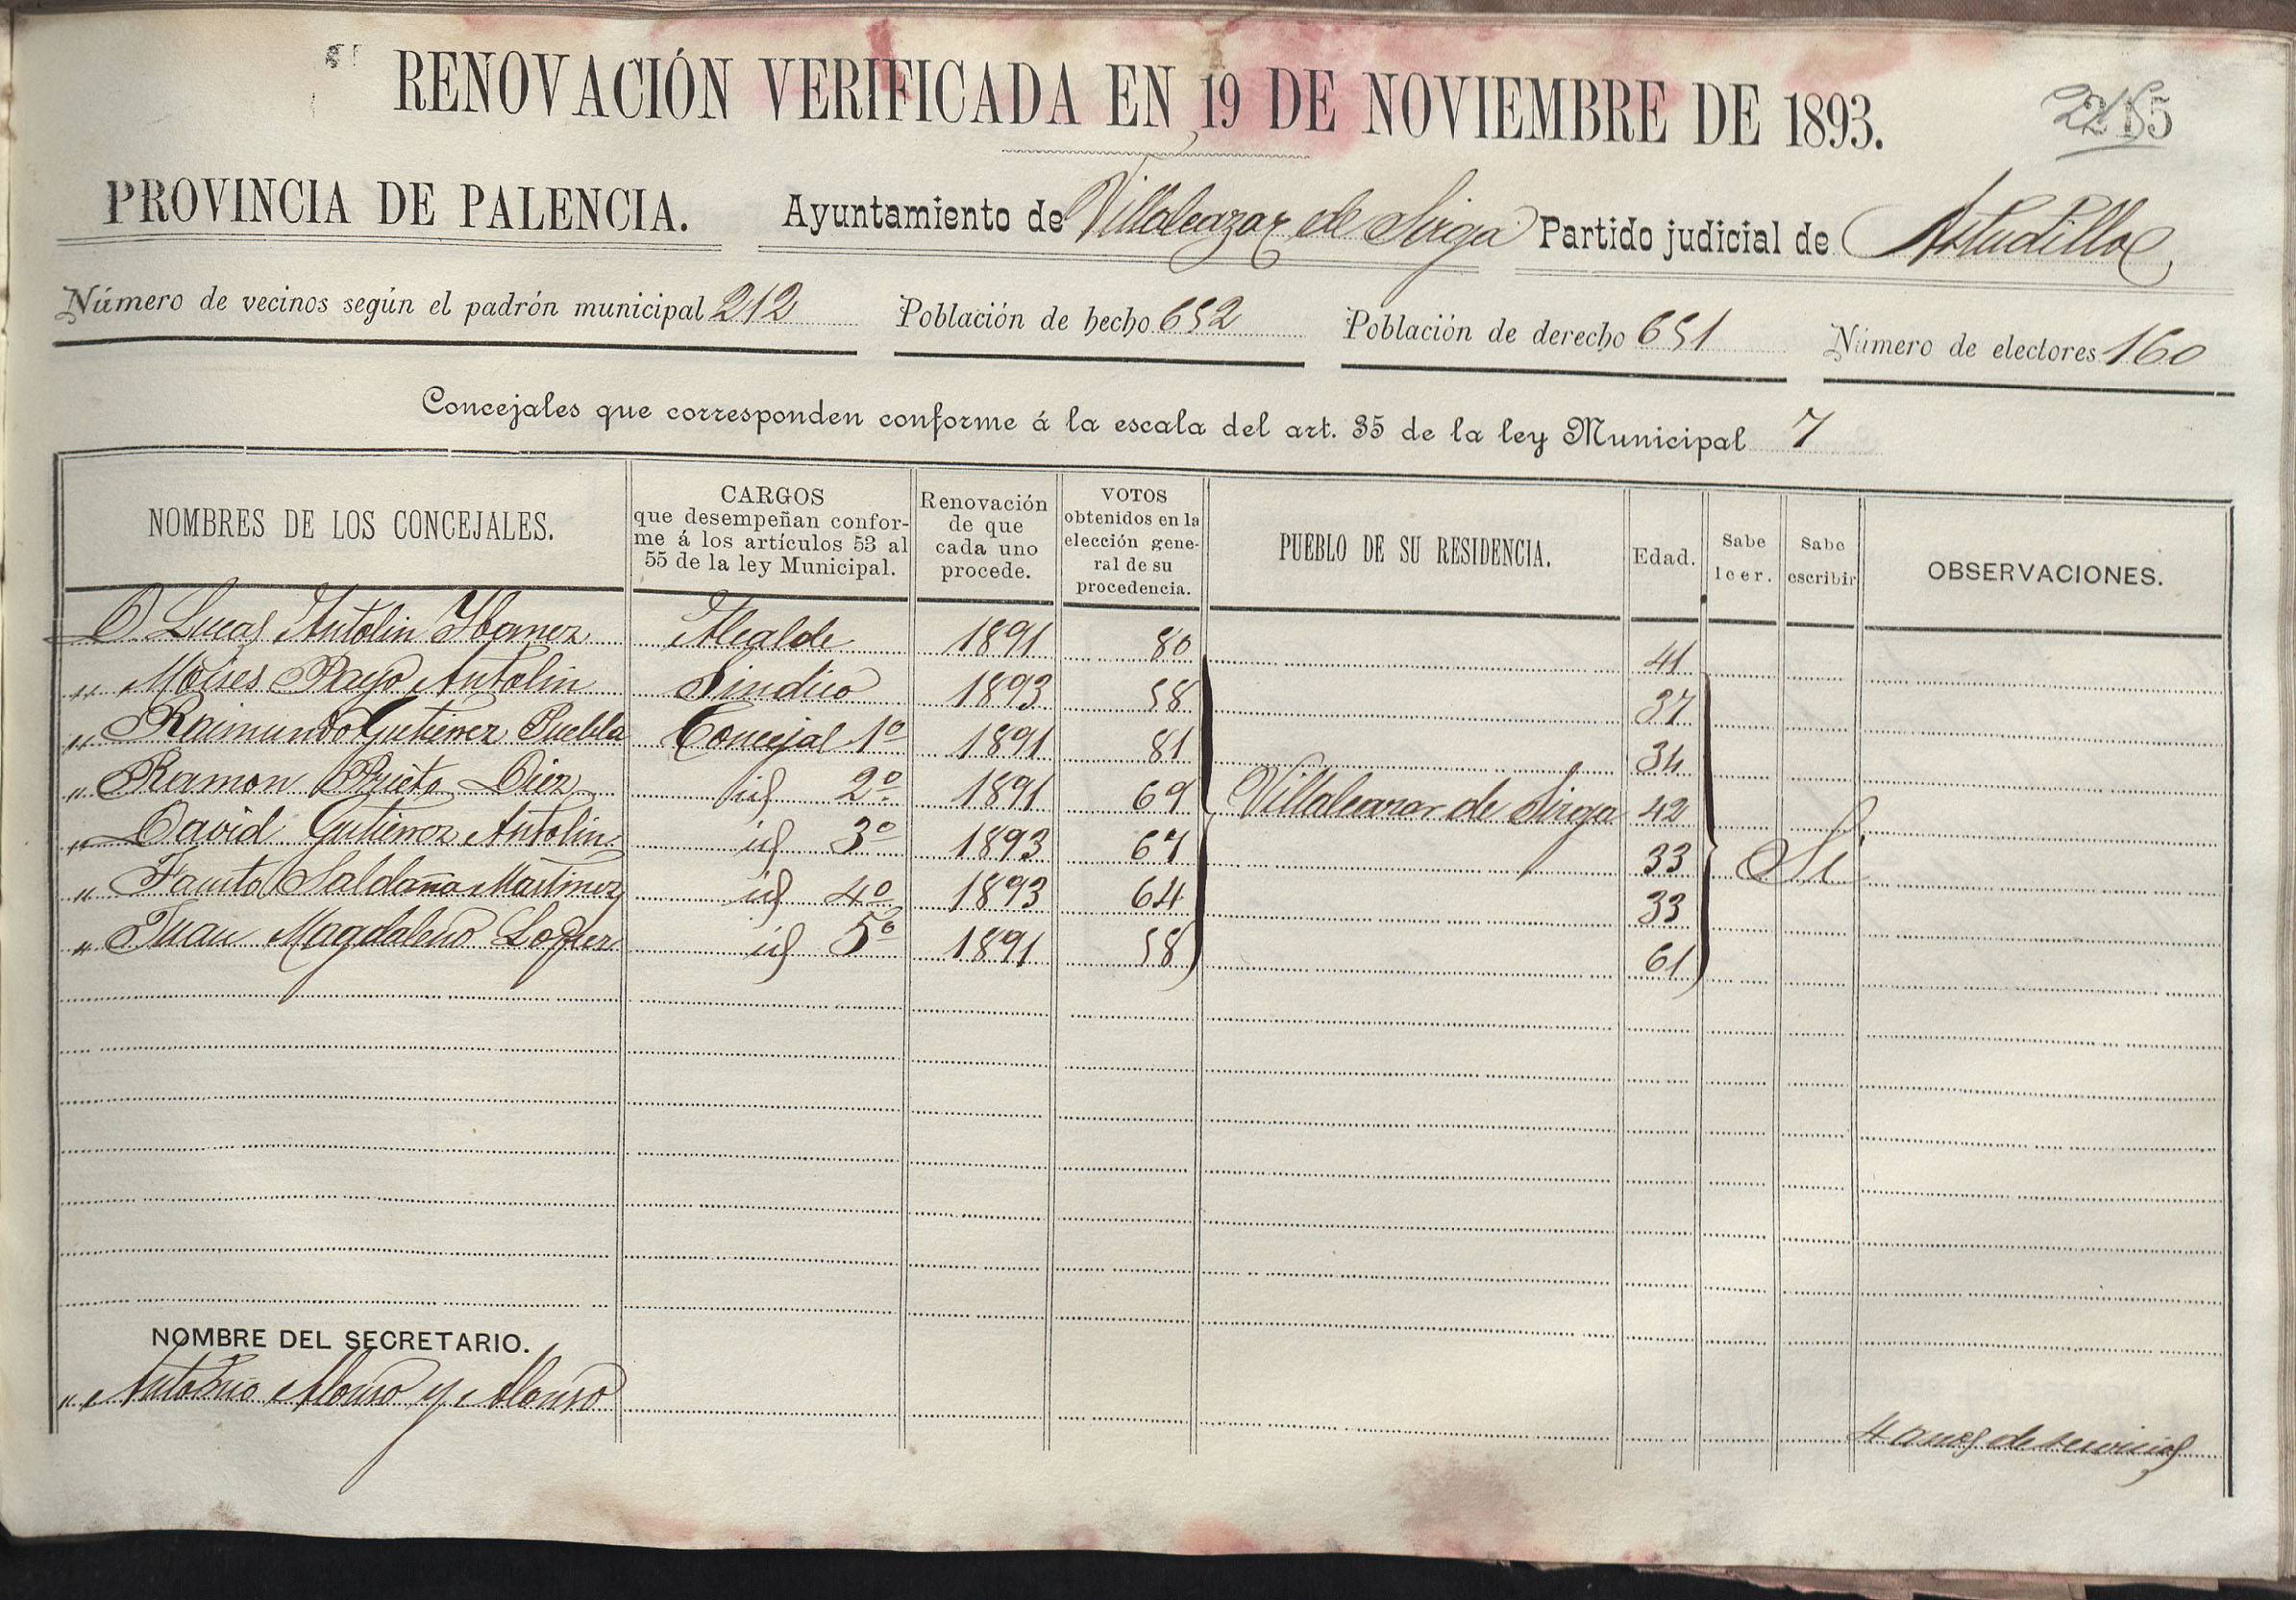 RENOVACIÓN VERIFICADA EN 19 DE NOVIEMBRE DE 1893.
PROVINCIA DE PALENCIA. Ayuntamiento de Villalcazar de Sirga Partido judicial de Astudillo
Número de vecinos según el padrón municipal 212 Población de hecho 652 Población de derecho 651 Número de electores 160
Concejales que corresponden conforme á la escala del art. 35 de la ley Municipal 7
NOMBRES DE LOS CONCEJALES. CARGOS que desempeñan confor- Renovación VOTOS PUEBLO DE SU RESIDENCIA. Edad. Sabe Sabe OBSERVACIONES.
me á los artículos 53 al de que obtenidos en la leer. escribir
55 de la ley Municipal. cada uno elección gene-
procede. ral de su
procedencia.
D. Lucas Antolin Ybanez Alcalde 1891 80 41
" Moises Payo Antolin Sindico 1893 58 37
" Raimundo Gutierrez Puebla Concejal 1º 1891 81 34
" Ramon Prieto Diez id 2º 1891 69 Villalcazar de Sirga 42
" David Gutierrez Antolin id 3º 1893 67 33 Si
" Fausto Saldaña Martinez id 4º 1893 64 33
" Juan Magdaleno Lopez id 5º 1891 58 61
NOMBRE DEL SECRETARIO.
" Antonio Alonso y Alonso 4 anos de servicios